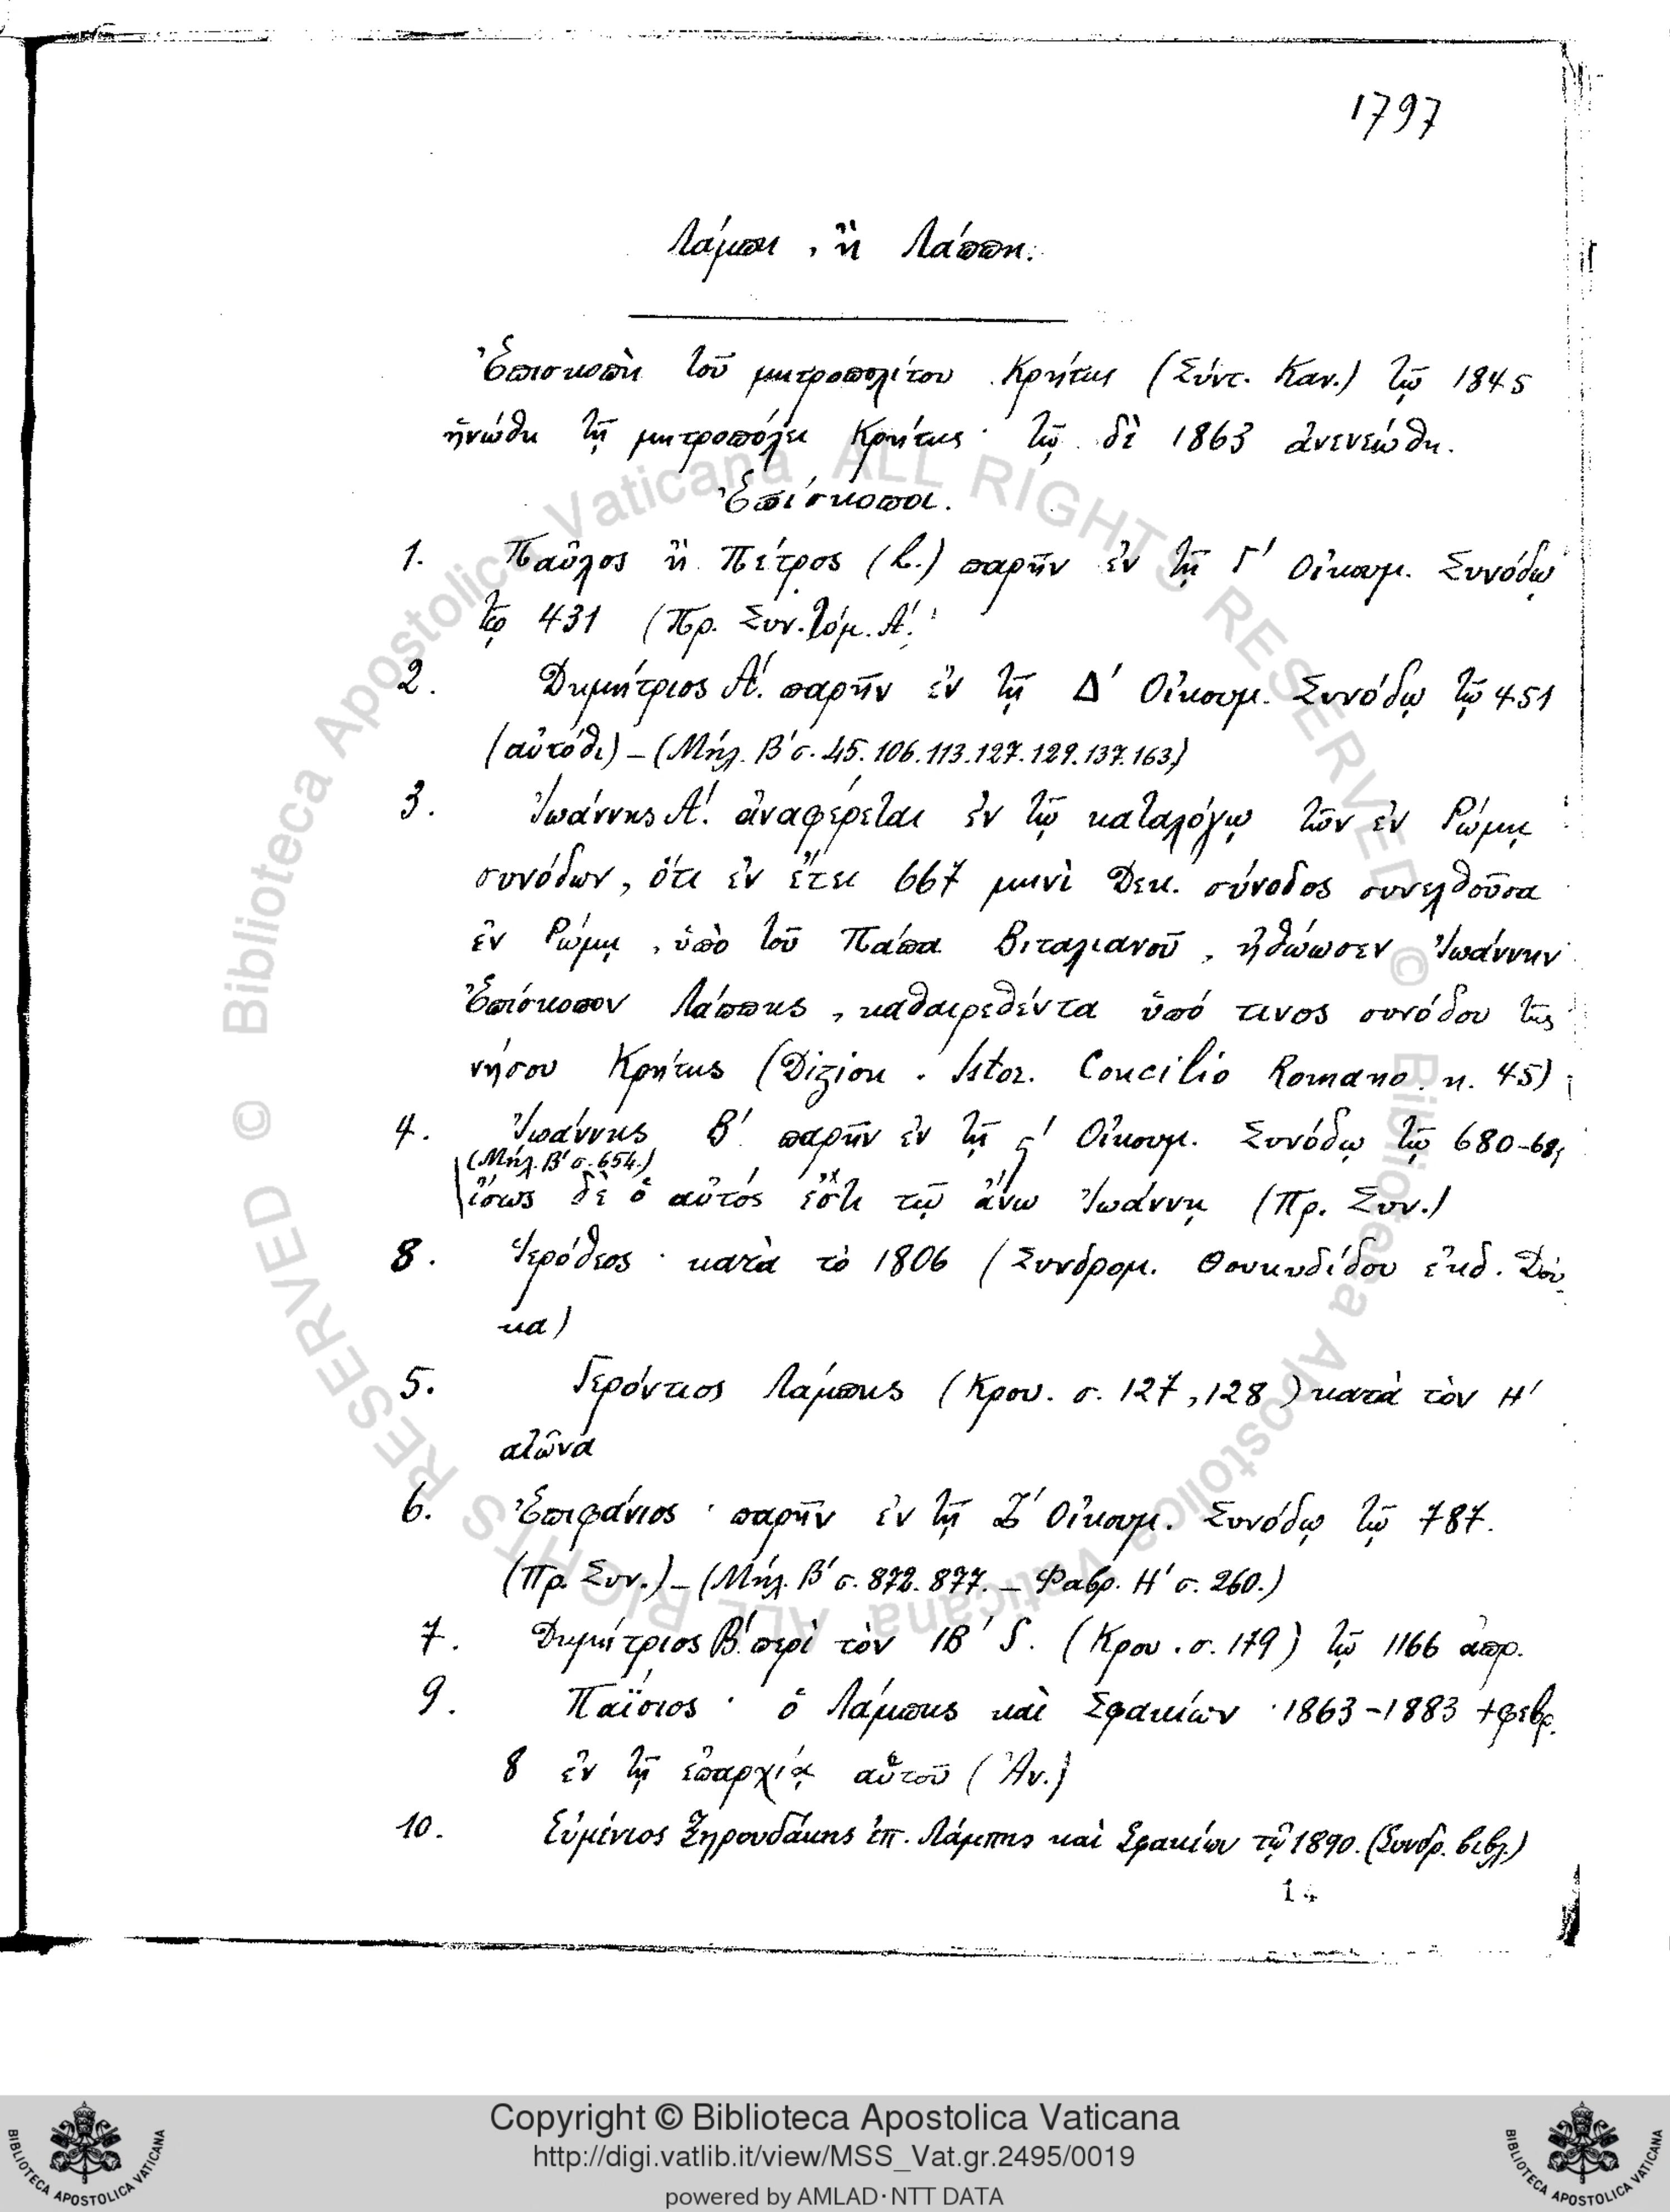 1797
Λάμπη, ἢ Λάππη.
Ἐπισκοπὴ τοῦ μητροπολίτου Κρήτης (Σύντ. Καν.) τῷ 1845
ἡνώθη τῇ μητροπόλει Κρήτης· τῷ δὲ 1863 ἀνενεώθη.
Ἐπίσκοποι.
1. Παῦλος ἢ Πέτρος (L.) παρῆν ἐν τῇ Γ΄ Οἰκουμ. Συνόδῳ
τῷ 431 (Πρ. Συν. Τόμ. Α΄.
2. Δημήτριος Α΄. παρῆν ἐν τῇ Δ΄ Οἰκουμ. Συνόδῳ τῷ 451
(αὐτόθι) – (Μήλ. Β΄ σ. 45. 106. 113. 127. 129. 137. 163.)
3. Ἰωάννης Α΄. ἀναφέρεται ἐν τῷ καταλόγῳ τῶν ἐν Ρώμῃ
συνόδων, ὅτι ἐν ἔτει 667 μηνὶ Δεκ. σύνοδος συνελθοῦσα
ἐν Ρώμῃ, ὑπὸ τοῦ Πάπα Βιταλιανοῦ, ἠθώωσεν Ἰωάννην
Ἐπίσκοπον Λάππης, καθαιρεθέντα ὑπό τινος συνόδου τῆς
νήσου Κρήτης (Dizion. Istor. Concilio Romano. n. 45)
4. Ἰωάννης Β΄ παρῆν ἐν τῇ ϛ΄ Οἰκουμ. Συνόδῳ τῷ 680-681
(Μήλ. Β΄ σ. 654.)
ἴσως δὲ ὁ αὐτός ἐστι τῷ ἄνω Ἰωάννῃ (Πρ. Συν.)
8. Ἱερόθεος· κατὰ τὸ 1806 (Συνδρομ. Θουκυδίδου ἐκδ. Δού-
κα)
5. Γερόντιος Λάμπης (Κρου. σ. 127, 128) κατὰ τὸν Η΄
αἰῶνα
6. Ἐπιφάνιος· παρῆν ἐν τῇ Ζ΄ Οἰκουμ. Συνόδῳ τῷ 787.
(Πρ. Συν.) – (Μήλ. Β΄ σ. 872. 877. – Φαβρ. Η΄ σ. 260.)
7. Δημήτριος Β΄. περὶ τὸν ΙΒ΄ (Κρου. σ. 179) τῷ 1166 ἀπρ.
9. Παΐσιος· ὁ Λάμπης καὶ Σφακίων· 1863-1883 +φεβρ.
8 ἐν τῇ ἐπαρχίᾳ αὐτοῦ (Ἀν.)
10. Εὐμένιος Ξηρουδάκης ἐπ. Λάμπης καὶ Σφακίων τῷ 1890. (Συνδρ. βιβλ.)
14
© Biblioteca Apostolica Vaticana ALL RIGHTS RESERVED © Biblioteca Apostolica Vaticana ALL RIGHTS RESERVED
Copyright © Biblioteca Apostolica Vaticana
http://digi.vatlib.it/view/MSS_Vat.gr.2495/0019
powered by AMLAD·NTT DATA
BIBLIOTECA APOSTOLICA VATICANA
BIBLIOTECA APOSTOLICA VATICANA